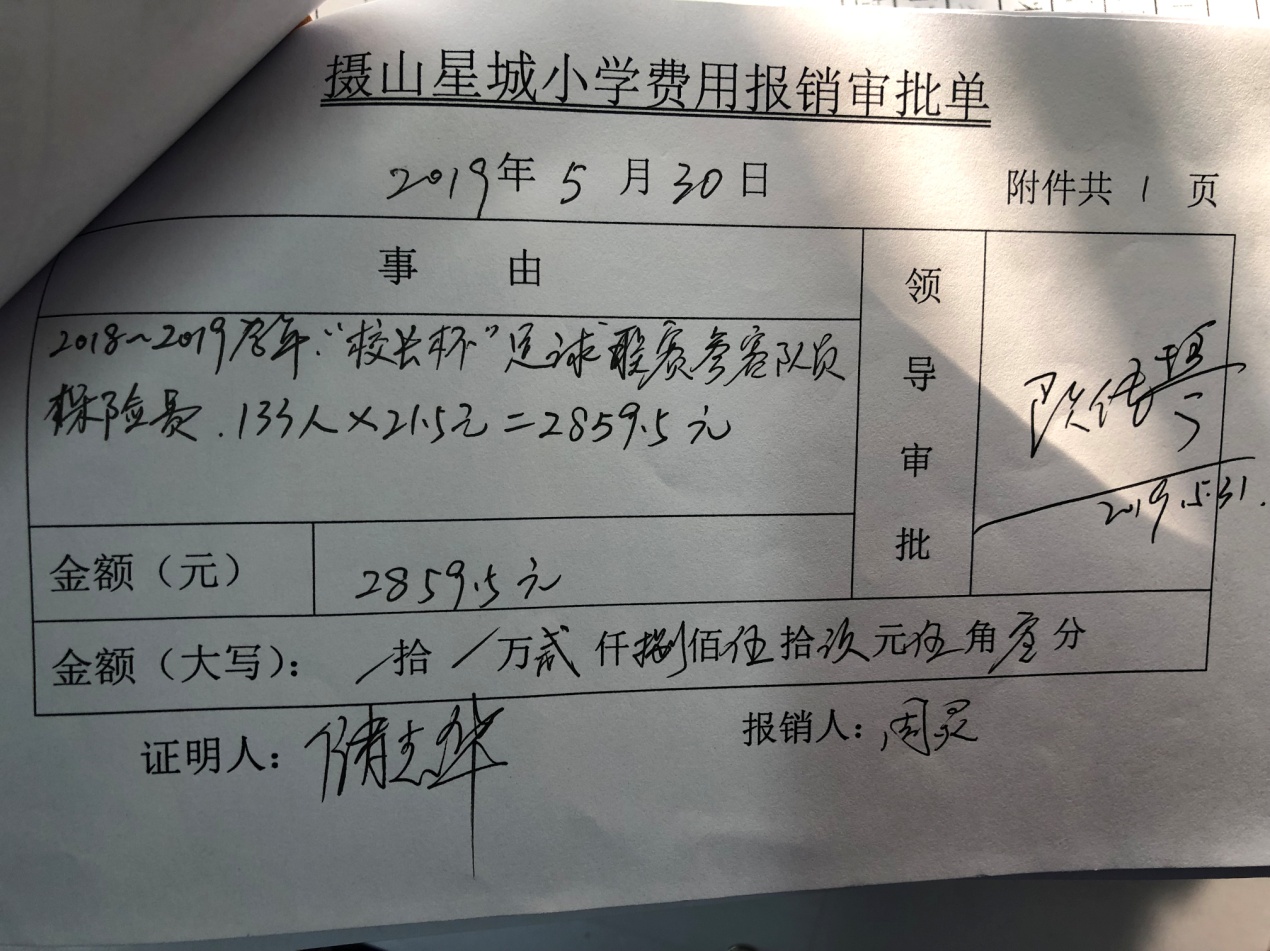 摄山星城小学费用报销审批单
2019年 5 月 30 日
附件共 1 页
事 由
2018~2019学年“校长杯”足球联赛参赛队员
保险费.133人×21.5元=2859.5元
领导审批
2019.5.31.
金额（元） 2859.5元
金额（大写）： /拾/万贰仟捌佰伍拾玖元伍角壹分
证明人：
报销人：周灵